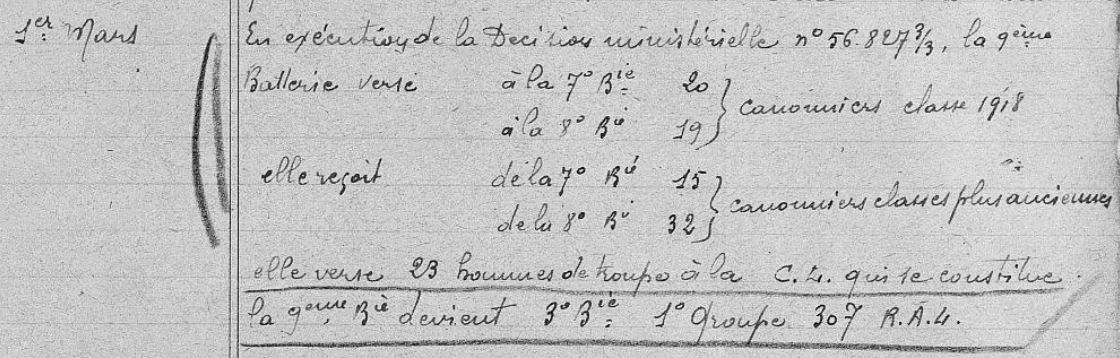 1er Mars
En exécution de la Decision ministérielle n° 56.827 3/3, la 9ème
Batterie verse à la 7° Bie 20
canonniers classe 1918
à la 8° Bie 19
elle reçoit de la 7° Bie 15
canonniers classes plus anciennes
de la 8° Bie 32
elle verse 23 hommes de troupe à la C.L. qui se constitue.
la 9ème Bie devient 3° Bie 1° Groupe 307 R.A.L.